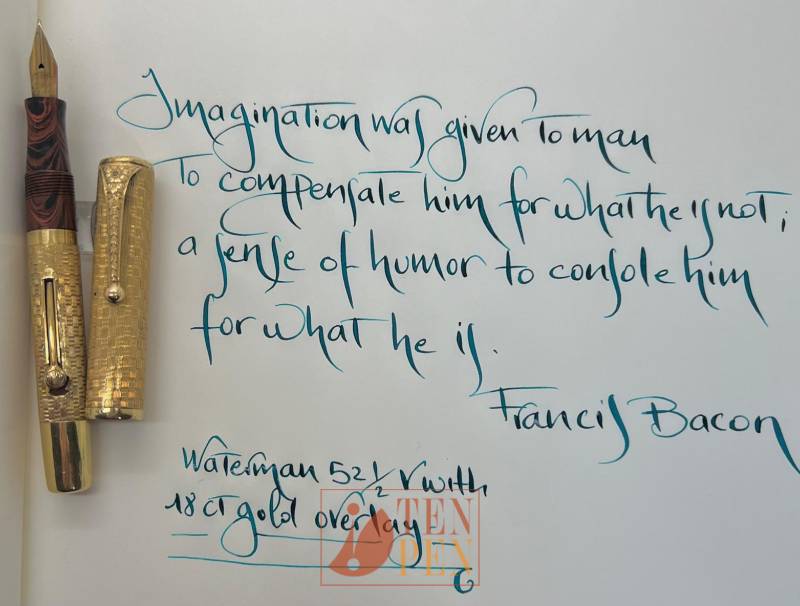 Imagination was given to man
to compensate him for what he is not;
a sense of humor to console him
for what he is.
Francis Bacon
Waterman 52 1/2 V with
18 ct gold overlay
TEN
PEN